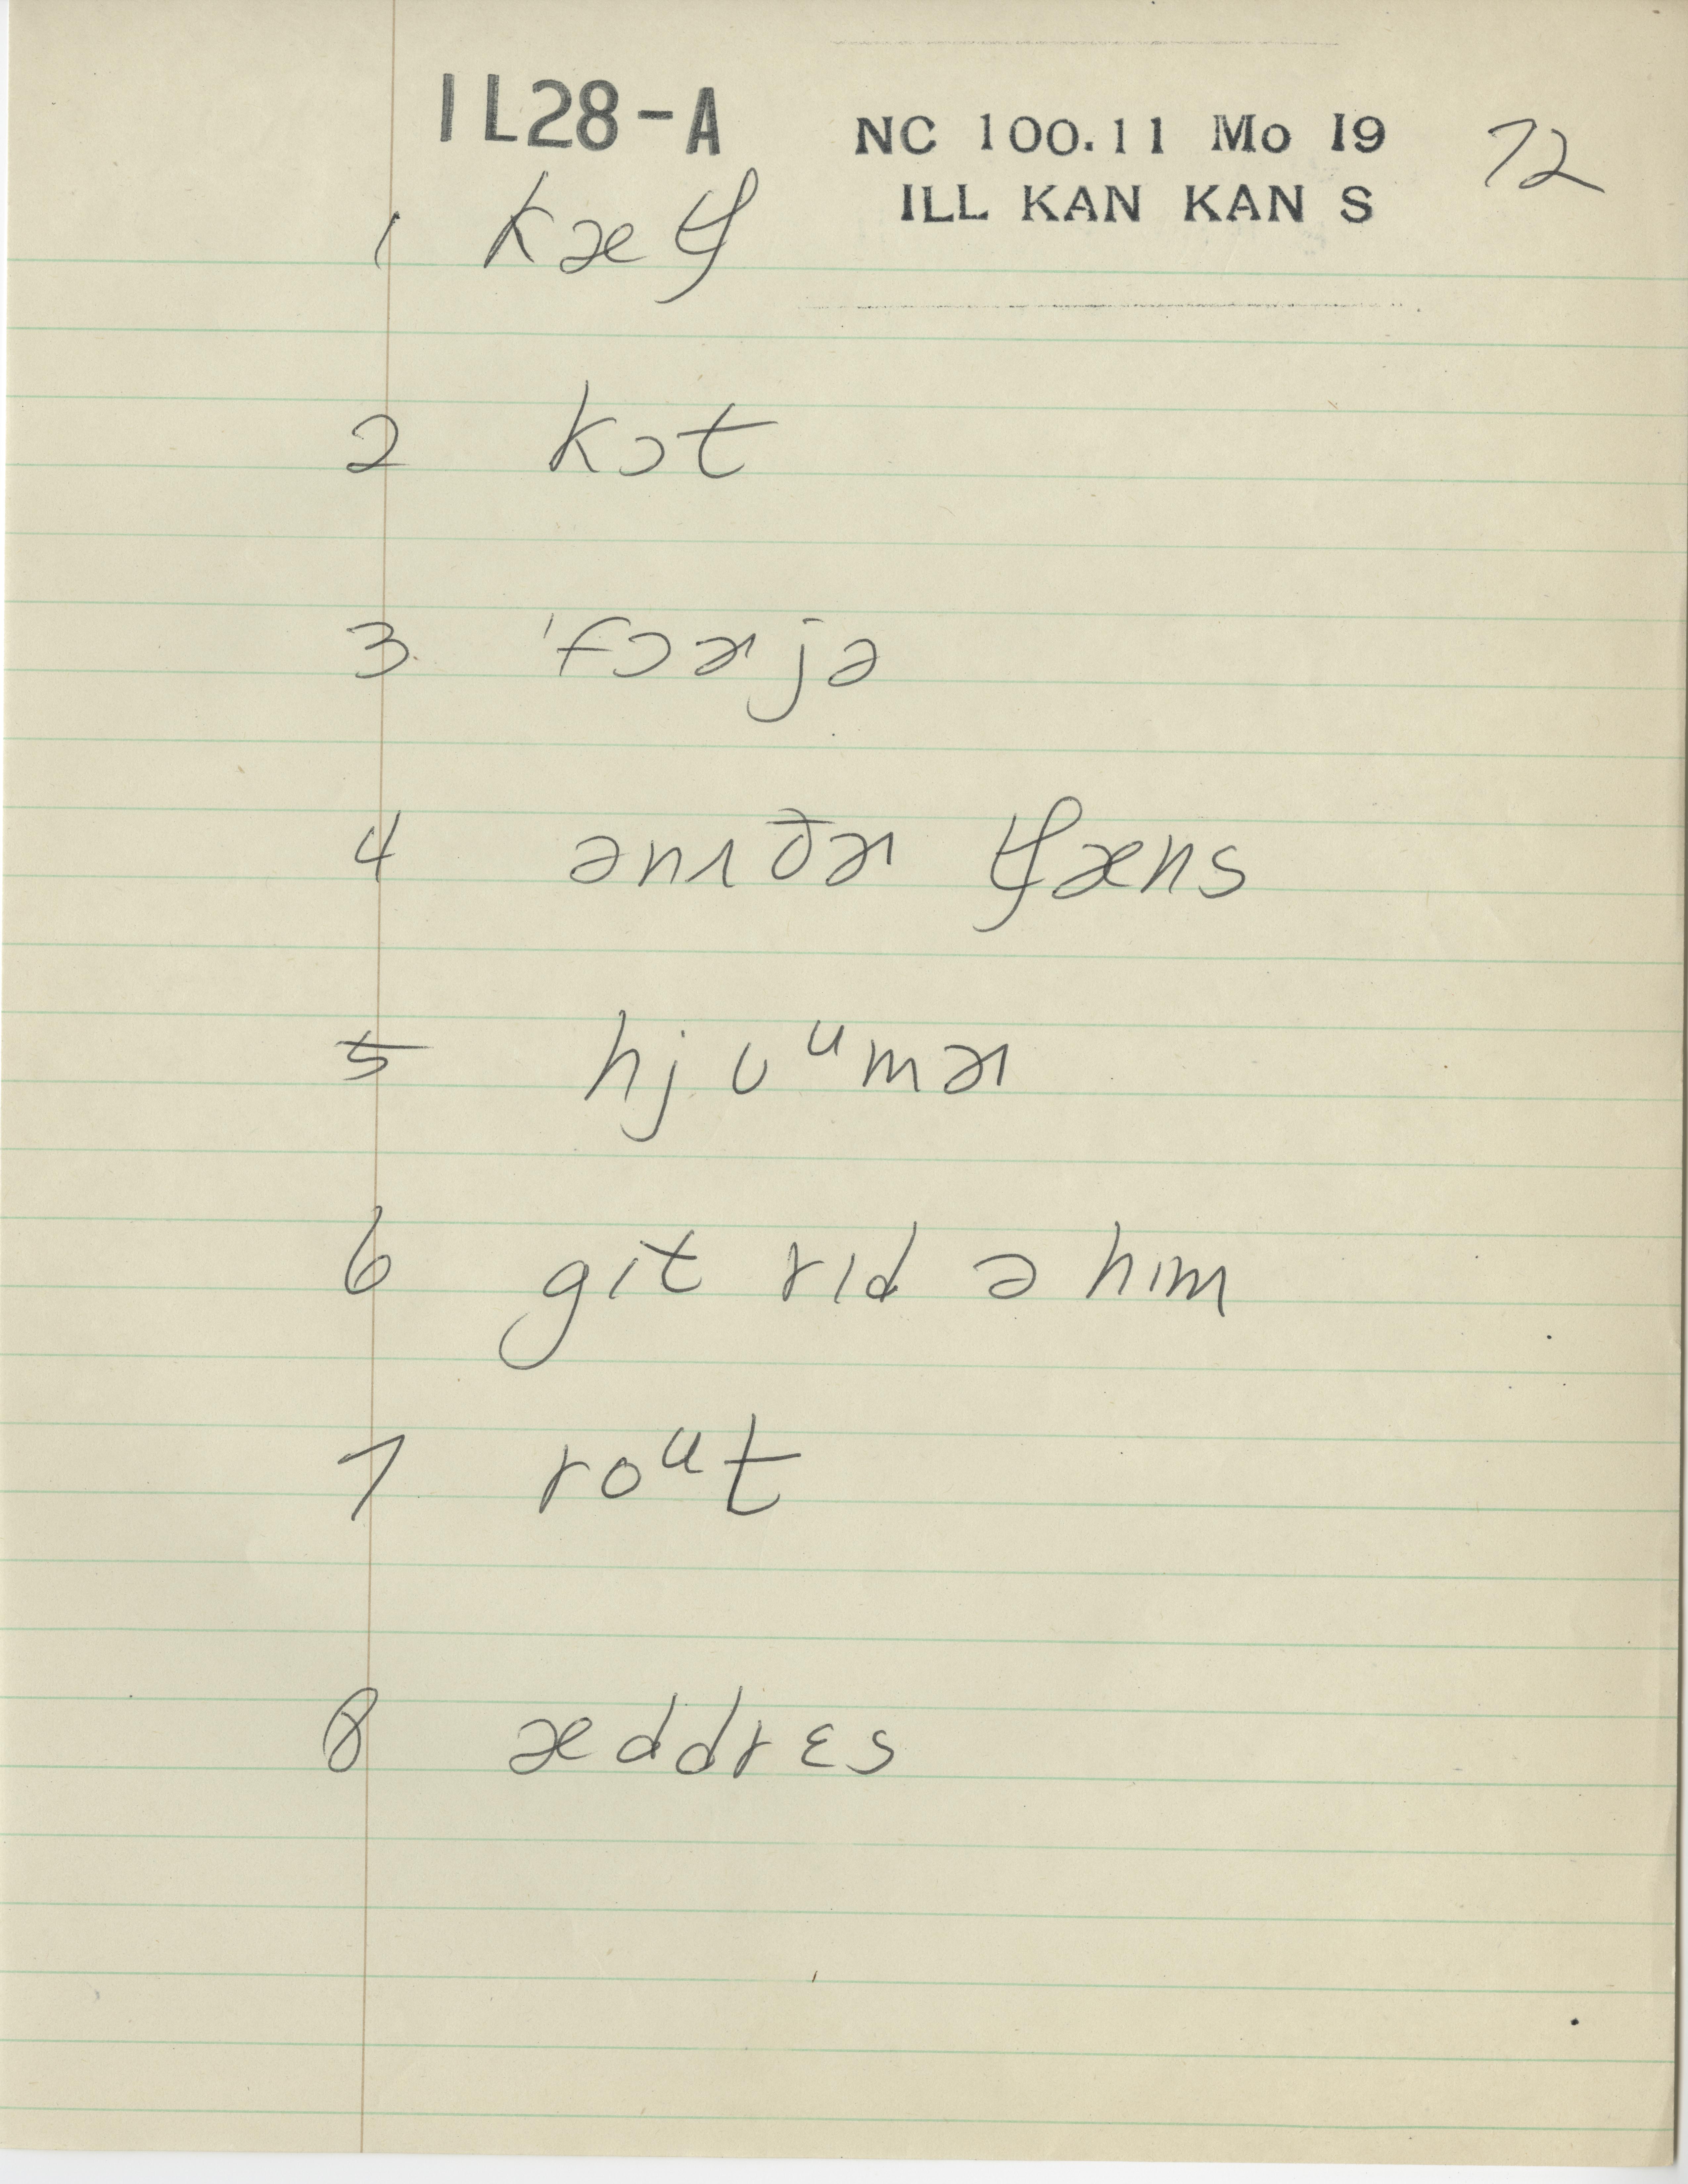 1L28-A
NC 100.11 Mo 19
72
ILL KAN KAN S
1 kæʧ
2 kɔt
3 ˈfɔɚjə
4 ənʌðɚ ʧæns
5 hjʊᵘmɚ
6 git rɪd ə hɪm
7 roᵘt
8 æddrɛs